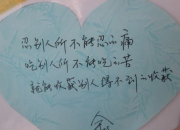 忍别人所不能忍的痛
吃别人所不能吃的苦
就能收获别人得不到的收获